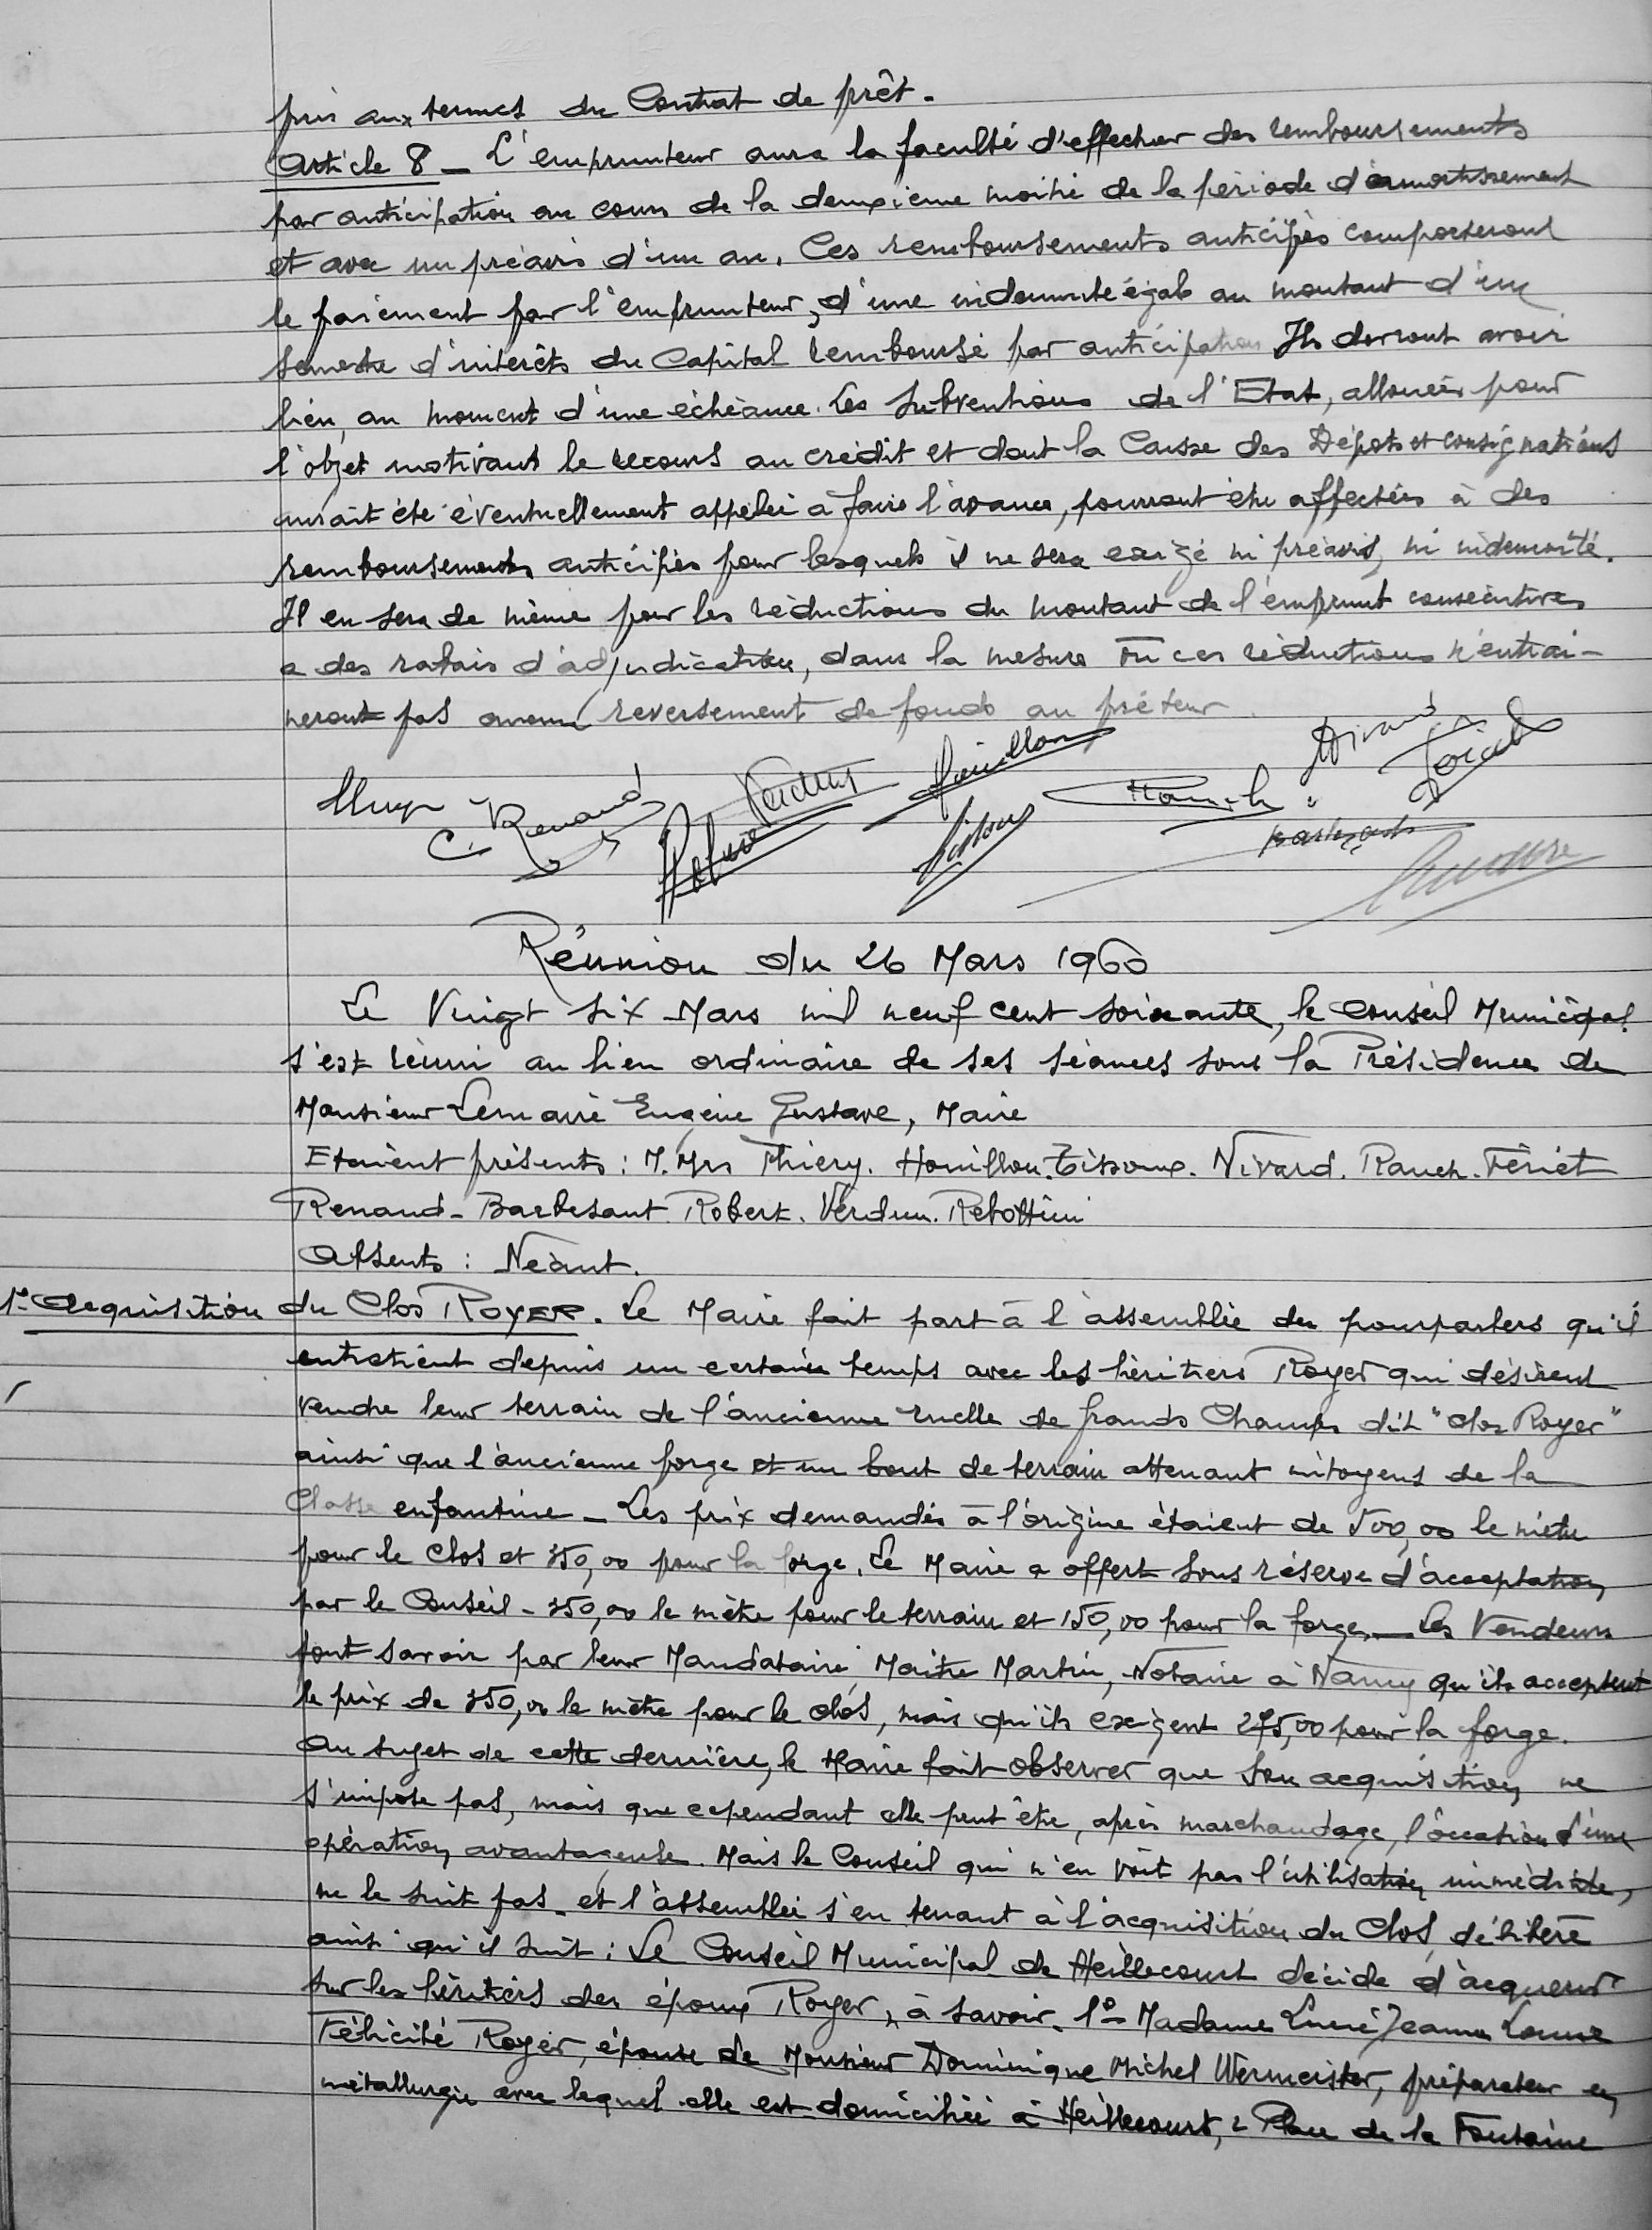 pris aux termes du Contrat de prêt.
Article 8 _ L'emprunteur aura la faculté d'effectuer des remboursements
par anticipation au cours de la deuxième moitié de la période d'amortissement
et avec un préavis d'un an. Ces remboursements anticipés comporteront
le paiement par l'emprunteur, d'une indemnité égale au montant d'un
semestre d'intérêts du Capital remboursé par anticipation Ils devront avoir
lieu, au moment d'une échéance. Les subventions de l'Etat, allouées pour
l'objet motivant le recours au crédit et dont la Caisse des Dépots et consignations
aurait été éventuellement appelée à faire l'avance, pourront être affectées à des
remboursements anticipés pour lesquels il ne sera exigé ni préavis, ni indemnité.
Il en sera de même pour les réductions du montant de l'emprunt consécutives
a des rabais d'adjudication, dans la mesure où ces réductions n'entrai-
neront pas aucun reversement de fonds au prêteur
C. Renaud Verdun Houillon Rauch Nivard
Barbezant
Réunion du 26 Mars 1960
Le Vingt six Mars mil neuf cent soixante, le Conseil Municipal
s'est réuni au lieu ordinaire de ses séances sous la Présidence de
Monsieur Lemaire Eugène Gustave, Maire
Etaient présents : M.Mrs Thiery. Houillon. Tisoux. Nivard. Rauch. Fériet
Renaud - Barbesant. Robert. Verdun. Rebottini
Absents : Néant.
1º Acquisition du Clos ROYER. Le Maire fait part à l'assemblée des pourparlers qu'il
entretient depuis un certain temps avec les héritiers Royer qui désirent
vendre leur terrain de l'ancienne ruelle de grands Champs dit "clos Royer"
ainsi que l'ancienne forge et un bout de terrain attenant mitoyens de la
Classe enfantine _ Les prix demandés à l'origine étaient de 500,00 le mètre
pour le clos et 350,00 pour la forge. Le Maire a offert sous réserve d'acceptation
par le Conseil - 350,00 le mètre pour le terrain et 150,00 pour la forge. _ Les Vendeurs
font savoir par leur Mandataire, Maître Martin, Notaire à Nancy qu'ils acceptent
le prix de 350,00 le mètre pour le clos, mais qu'ils exigent 275,00 pour la forge.
Au sujet de cette dernière, le Maire fait observer que son acquisition ne
s'impose pas, mais que cependant elle peut être, après marchandage, l'occation d'une
opération avantageuse. Mais le Conseil qui n'en voit pas l'utilisation immédiate,
ne le suit pas _ et l'assemblée s'en tenant à l'acquisition du Clos, délibère
ainsi qu'il suit : Le Conseil Municipal de Heillecourt décide d'acquérir
sur les héritiers des époux Royer, à savoir. 1º Madame Jeanne Louise
Félicité Royer, épouse de Monsieur Dominique Michel Wermeister, préparateur en
métallurgie avec lequel elle est domiciliée à Heillecourt, 2 Place de la Fontaine